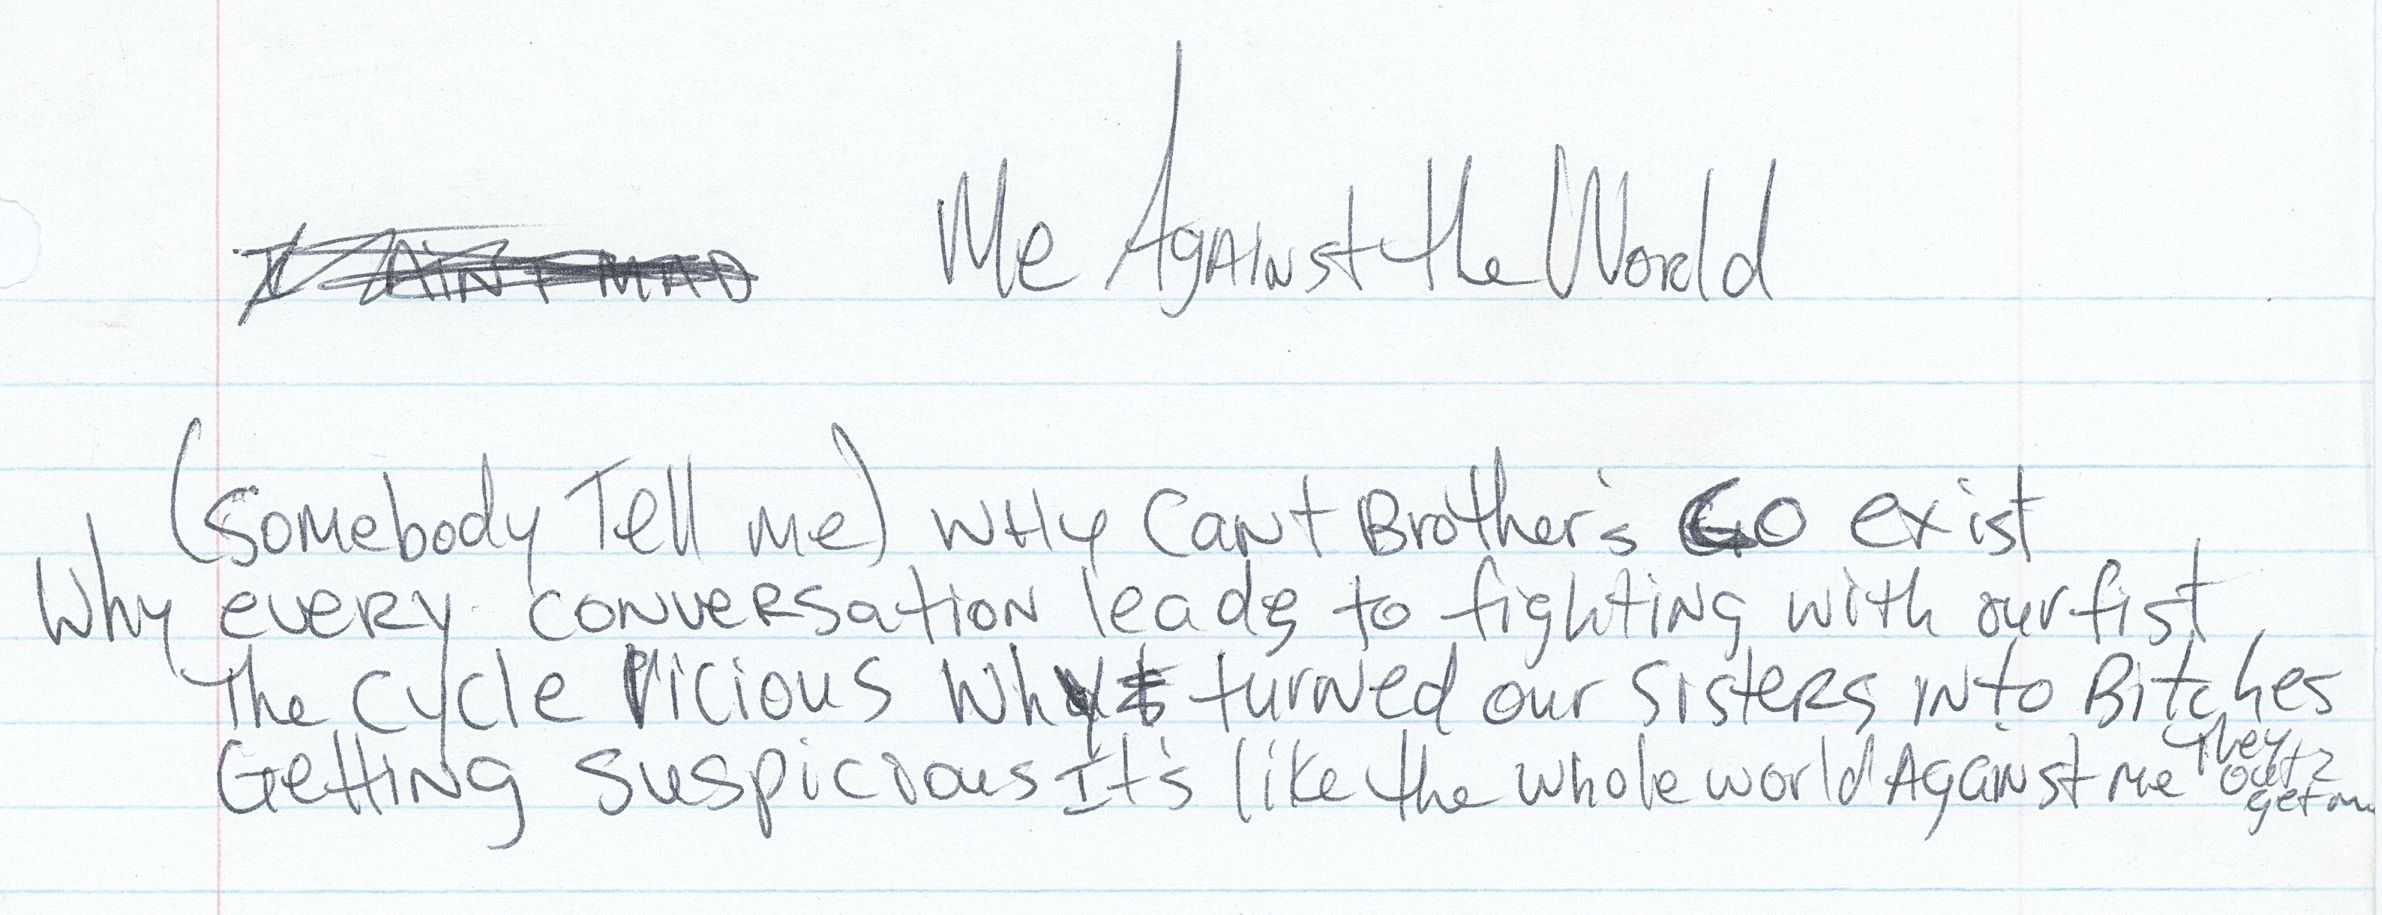 I AIN'T MAD Me Against the World
(Somebody Tell me) WHy Cant Brother's Co exist
Why eveRy conveRsation leads to fighting with our fist
The Cycle Vicious Why turned our SisteRs into Bitches
Getting Suspicious It's like the whole world Against me They out 2 get me